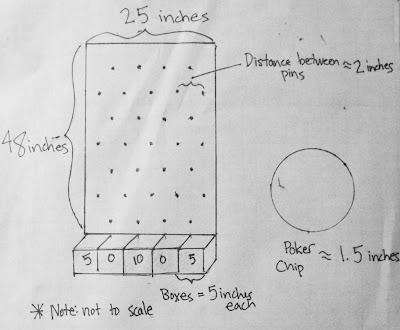 25 inches
Distance between ≈ 2 inches
pins
48 inches
5 0 10 0 5
Poker ≈ 1.5 inches
Chip
Boxes = 5 inches
each
* Note: not to scale